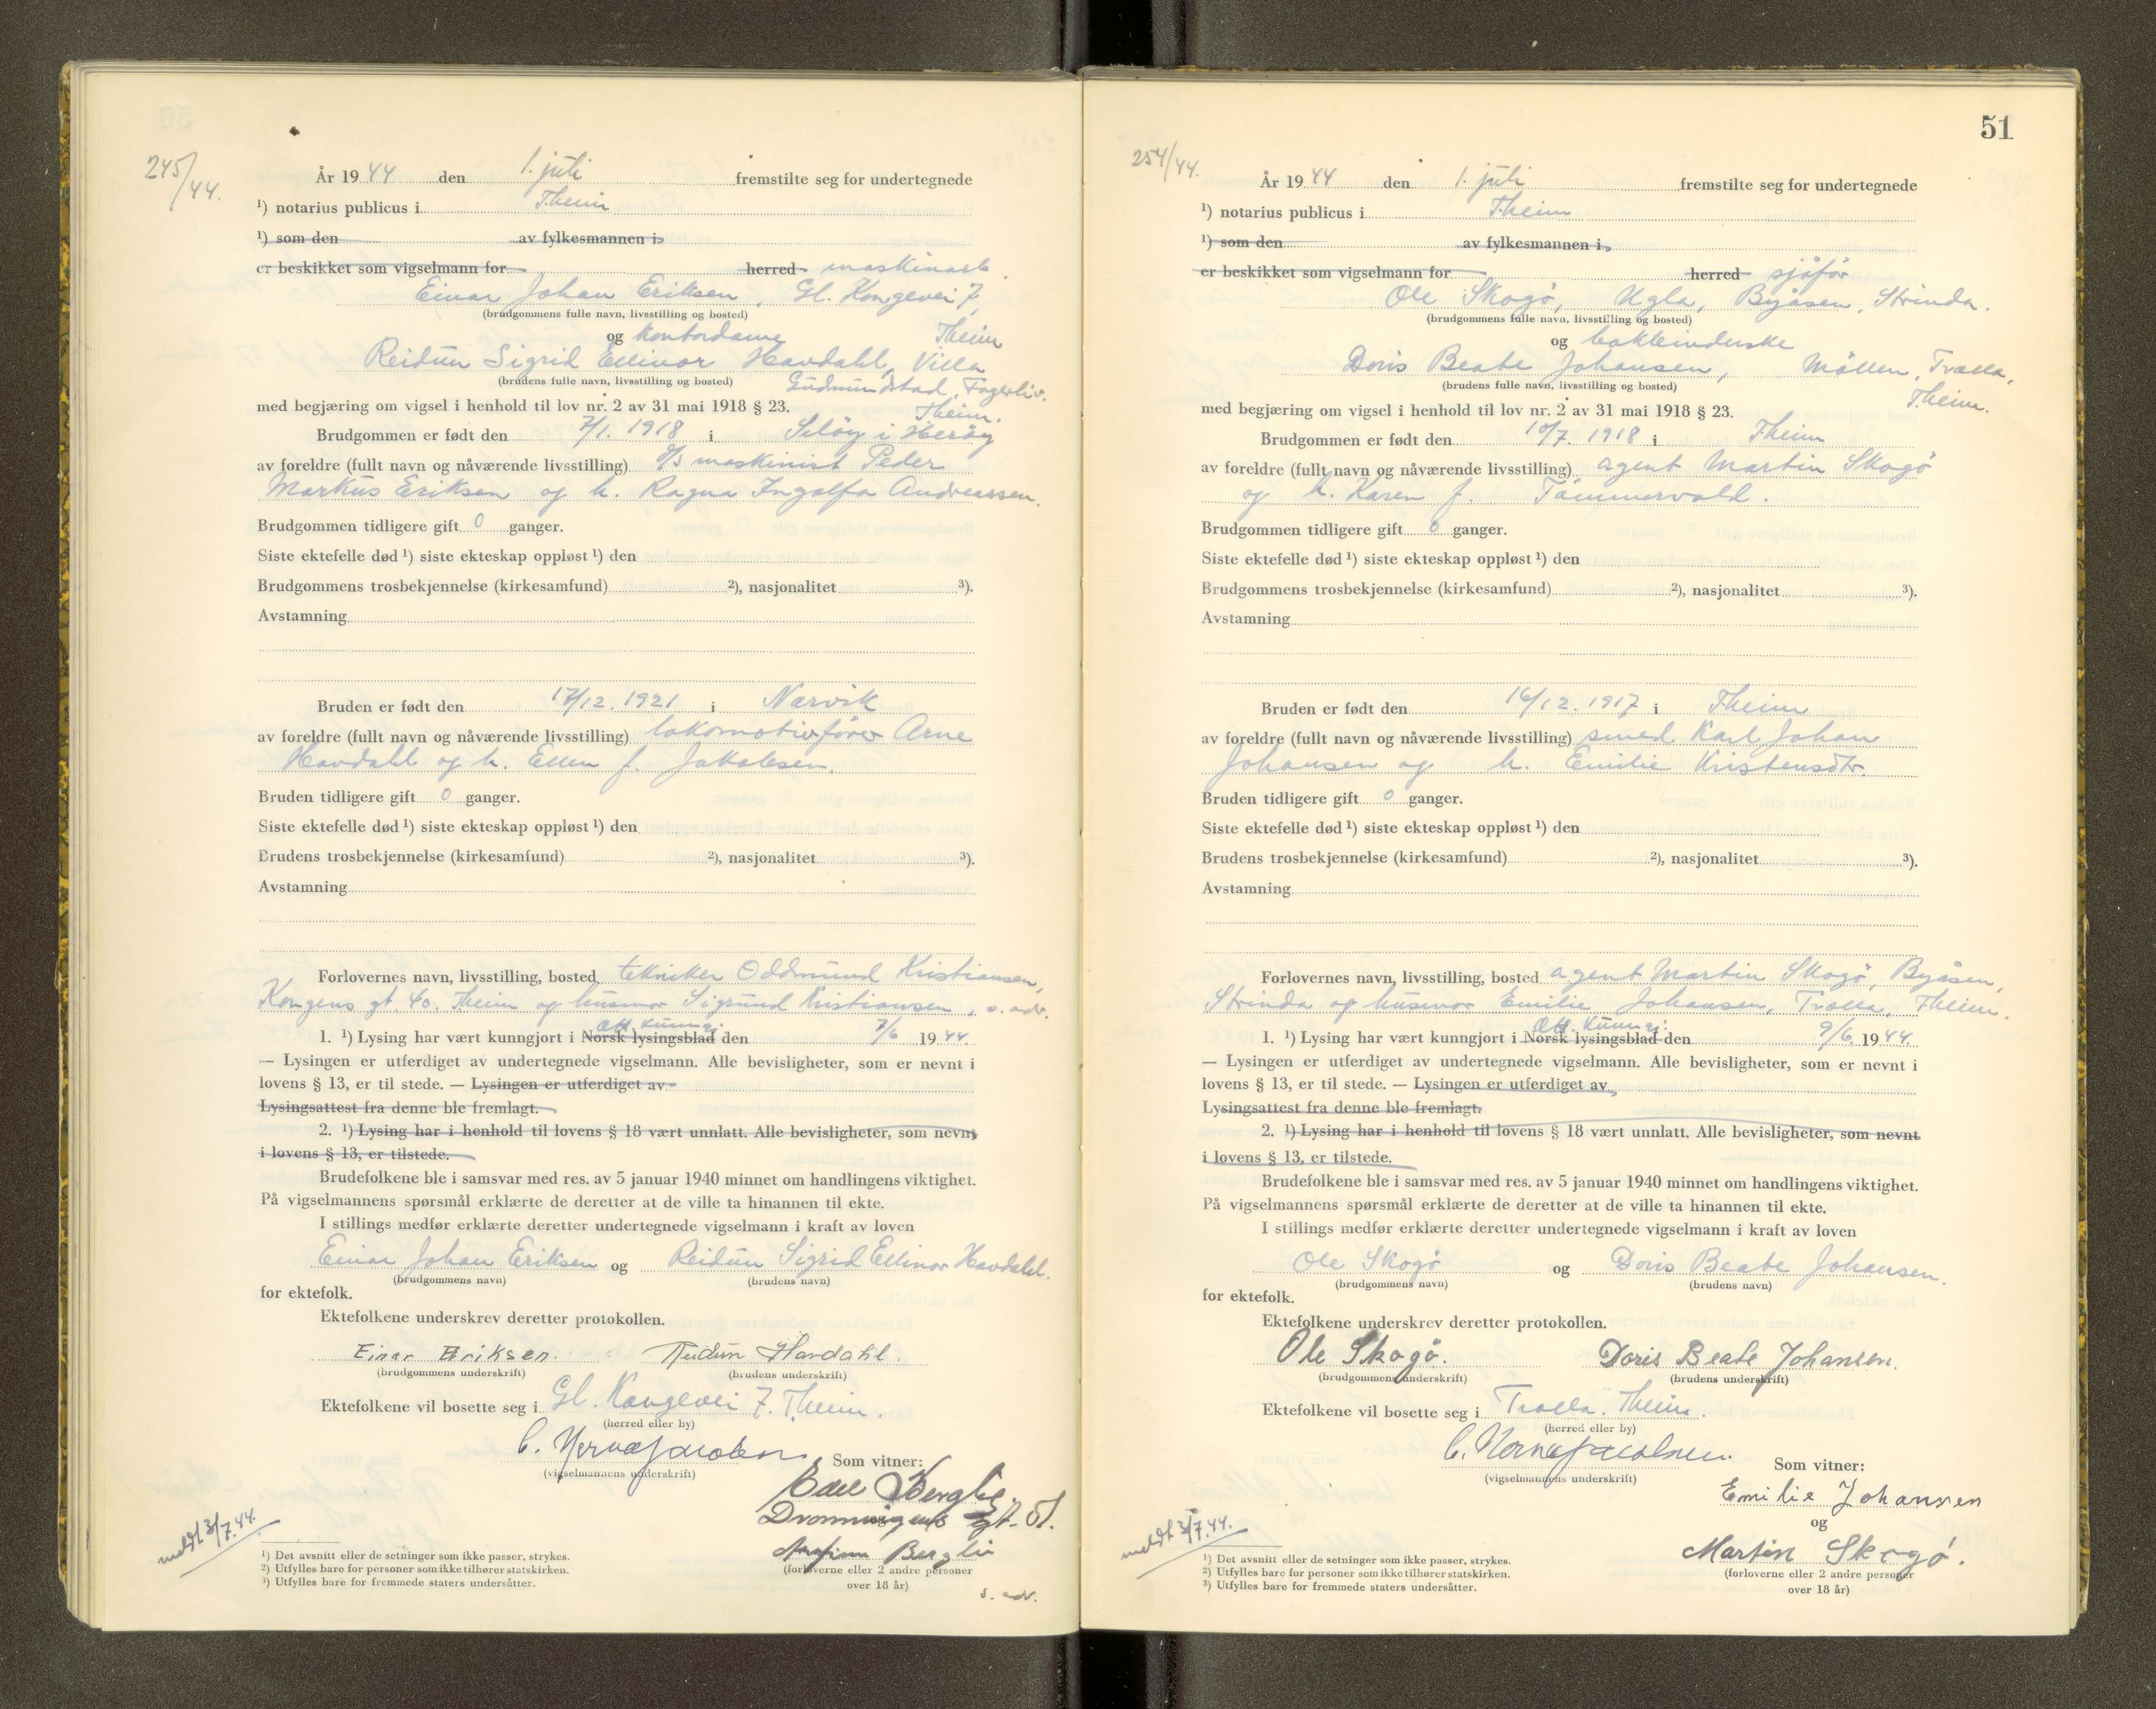 245/44.
År 1944 den 1. juli fremstilte seg for undertegnede
¹) notarius publicus i Theim
¹) som den av fylkesmannen i
er beskikket som vigselmann for herred maskinarb.
Einar Johan Eriksen, Gl. Kongevei 7,
(brudgommens fulle navn, livsstilling og bosted)
og kontordame Theim
Reidun Sigrid Ellinor Havdahl, Villa
(brudens fulle navn, livsstilling og bosted) Gudmundstad, Fagerliv.
med begjæring om vigsel i henhold til lov nr. 2 av 31 mai 1918 § 23. Theim.
Brudgommen er født den 7/1. 1918 i Seløy i Herøy
av foreldre (fullt navn og nåværende livsstilling) d/s maskinist Peder
Markus Eriksen og h. Ragna Ingolfa Andreassen.
Brudgommen tidligere gift 0 ganger.
Siste ektefelle død ¹) siste ekteskap oppløst ¹) den
Brudgommens trosbekjennelse (kirkesamfund) ²), nasjonalitet ³).
Avstamning
Bruden er født den 17/12. 1921 i Narvik
av foreldre (fullt navn og nåværende livsstilling) lokomotivfører Arne
Havdahl og h. Ellen f. Jakobsen.
Bruden tidligere gift 0 ganger.
Siste ektefelle død ¹) siste ekteskap oppløst ¹) den
Brudens trosbekjennelse (kirkesamfund) ²), nasjonalitet ³).
Avstamning
Forlovernes navn, livsstilling, bosted tekniker Oddmund Kristiansen,
Kongens gt. 40. Theim og husmor Sigrund Kristiansen, s. adr.
Off. kunngj.
1. ¹) Lysing har vært kunngjort i Norsk lysingsblad den 7/6 1944.
— Lysingen er utferdiget av undertegnede vigselmann. Alle bevisligheter, som er nevnt i
lovens § 13, er til stede. — Lysingen er utferdiget av
Lysingsattest fra denne ble fremlagt.
2. ¹) Lysing har i henhold til lovens § 18 vært unnlatt. Alle bevisligheter, som nevnt
i lovens § 13, er tilstede.
Brudefolkene ble i samsvar med res. av 5 januar 1940 minnet om handlingens viktighet.
På vigselmannens spørsmål erklærte de deretter at de ville ta hinannen til ekte.
I stillings medfør erklærte deretter undertegnede vigselmann i kraft av loven
Einar Johan Eriksen og Reidun Sigrid Ellinor Havdahl.
(brudgommens navn) (brudens navn)
for ektefolk.
Ektefolkene underskrev deretter protokollen.
Einar Eriksen. Reidun Havdahl.
(brudgommens underskrift) (brudens underskrift)
Ektefolkene vil bosette seg i Gl. Kongevei 7. Theim.
(herred eller by)
(vigselmannens underskrift)
Som vitner:
Berglie.
Dronningens gt. 51.
Berglie
(forloverne eller 2 andre personer
over 18 år)
s. adr.
meldt 3/7.44.
¹) Det avsnitt eller de setninger som ikke passer, strykes.
²) Utfylles bare for personer som ikke tilhører statskirken.
³) Utfylles bare for fremmede staters undersåtter.
51
254/44.
År 1944 den 1. juli fremstilte seg for undertegnede
¹) notarius publicus i Theim
¹) som den av fylkesmannen i
er beskikket som vigselmann for herred sjåfør
Ole Skogø, Ugla, Byåsen, Strinda.
(brudgommens fulle navn, livsstilling og bosted)
og
Doris Beate Johansen, Møllen, Trolla,
(brudens fulle navn, livsstilling og bosted)
Theim.
med begjæring om vigsel i henhold til lov nr. 2 av 31 mai 1918 § 23.
Brudgommen er født den 10/7. 1918 i Theim
av foreldre (fullt navn og nåværende livsstilling) agent Martin Skogø
og h. Karen f. Tømmervold.
Brudgommen tidligere gift 0 ganger.
Siste ektefelle død ¹) siste ekteskap oppløst ¹) den
Brudgommens trosbekjennelse (kirkesamfund) ²), nasjonalitet ³).
Avstamning
Bruden er født den 16/12. 1917 i Theim
av foreldre (fullt navn og nåværende livsstilling) smed Karl Johan
Johansen og h. Emilie Kristensdtr.
Bruden tidligere gift 0 ganger.
Siste ektefelle død ¹) siste ekteskap oppløst ¹) den
Brudens trosbekjennelse (kirkesamfund) ²), nasjonalitet ³).
Avstamning
Forlovernes navn, livsstilling, bosted agent Martin Skogø, Byåsen,
Strinda og husmor Emilie Johansen, Trolla, Theim.
Off. kunngj.
1. ¹) Lysing har vært kunngjort i Norsk lysingsblad den 9/6. 1944.
— Lysingen er utferdiget av undertegnede vigselmann. Alle bevisligheter, som er nevnt i
lovens § 13, er til stede. — Lysingen er utferdiget av
Lysingsattest fra denne ble fremlagt.
2. ¹) Lysing har i henhold til lovens § 18 vært unnlatt. Alle bevisligheter, som nevnt
i lovens § 13, er tilstede.
Brudefolkene ble i samsvar med res. av 5 januar 1940 minnet om handlingens viktighet.
På vigselmannens spørsmål erklærte de deretter at de ville ta hinannen til ekte.
I stillings medfør erklærte deretter undertegnede vigselmann i kraft av loven
Ole Skogø og Doris Beate Johansen.
(brudgommens navn) (brudens navn)
for ektefolk.
Ektefolkene underskrev deretter protokollen.
Ole Skogø. Doris Beate Johansen.
(brudgommens underskrift) (brudens underskrift)
Ektefolkene vil bosette seg i Trolla. Theim.
(herred eller by)
(vigselmannens underskrift)
Som vitner:
Emilie Johansen
og
Martin Skogø.
(forloverne eller 2 andre personer
over 18 år)
meldt 3/7.44.
¹) Det avsnitt eller de setninger som ikke passer, strykes.
²) Utfylles bare for personer som ikke tilhører statskirken.
³) Utfylles bare for fremmede staters undersåtter.